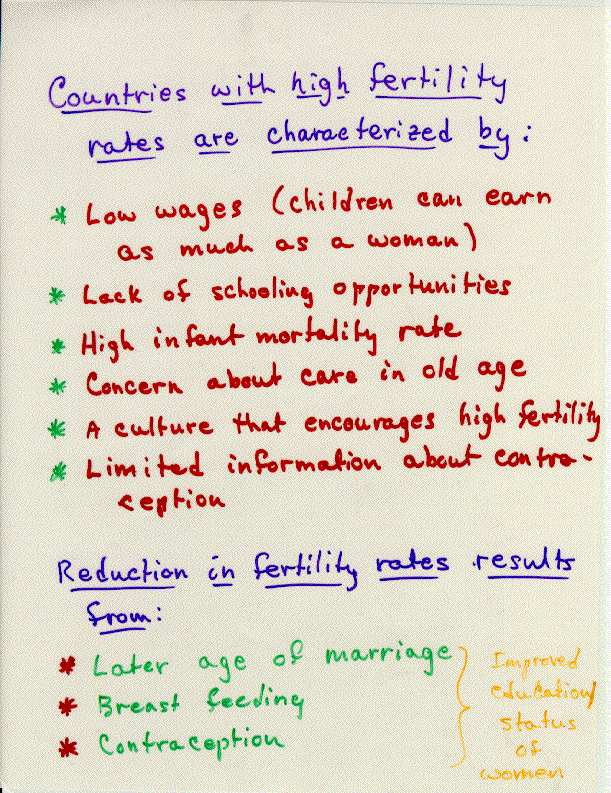 Countries with high fertility
rates are characterized by:
* Low wages (children can earn
as much as a woman)
* Lack of schooling opportunities
* High infant mortality rate
* Concern about care in old age
* A culture that encourages high fertility
* Limited information about contra-
ception
Reduction in fertility rates results
from:
* Later age of marriage
* Breast feeding
* Contraception
Improved
education/
status
of
women